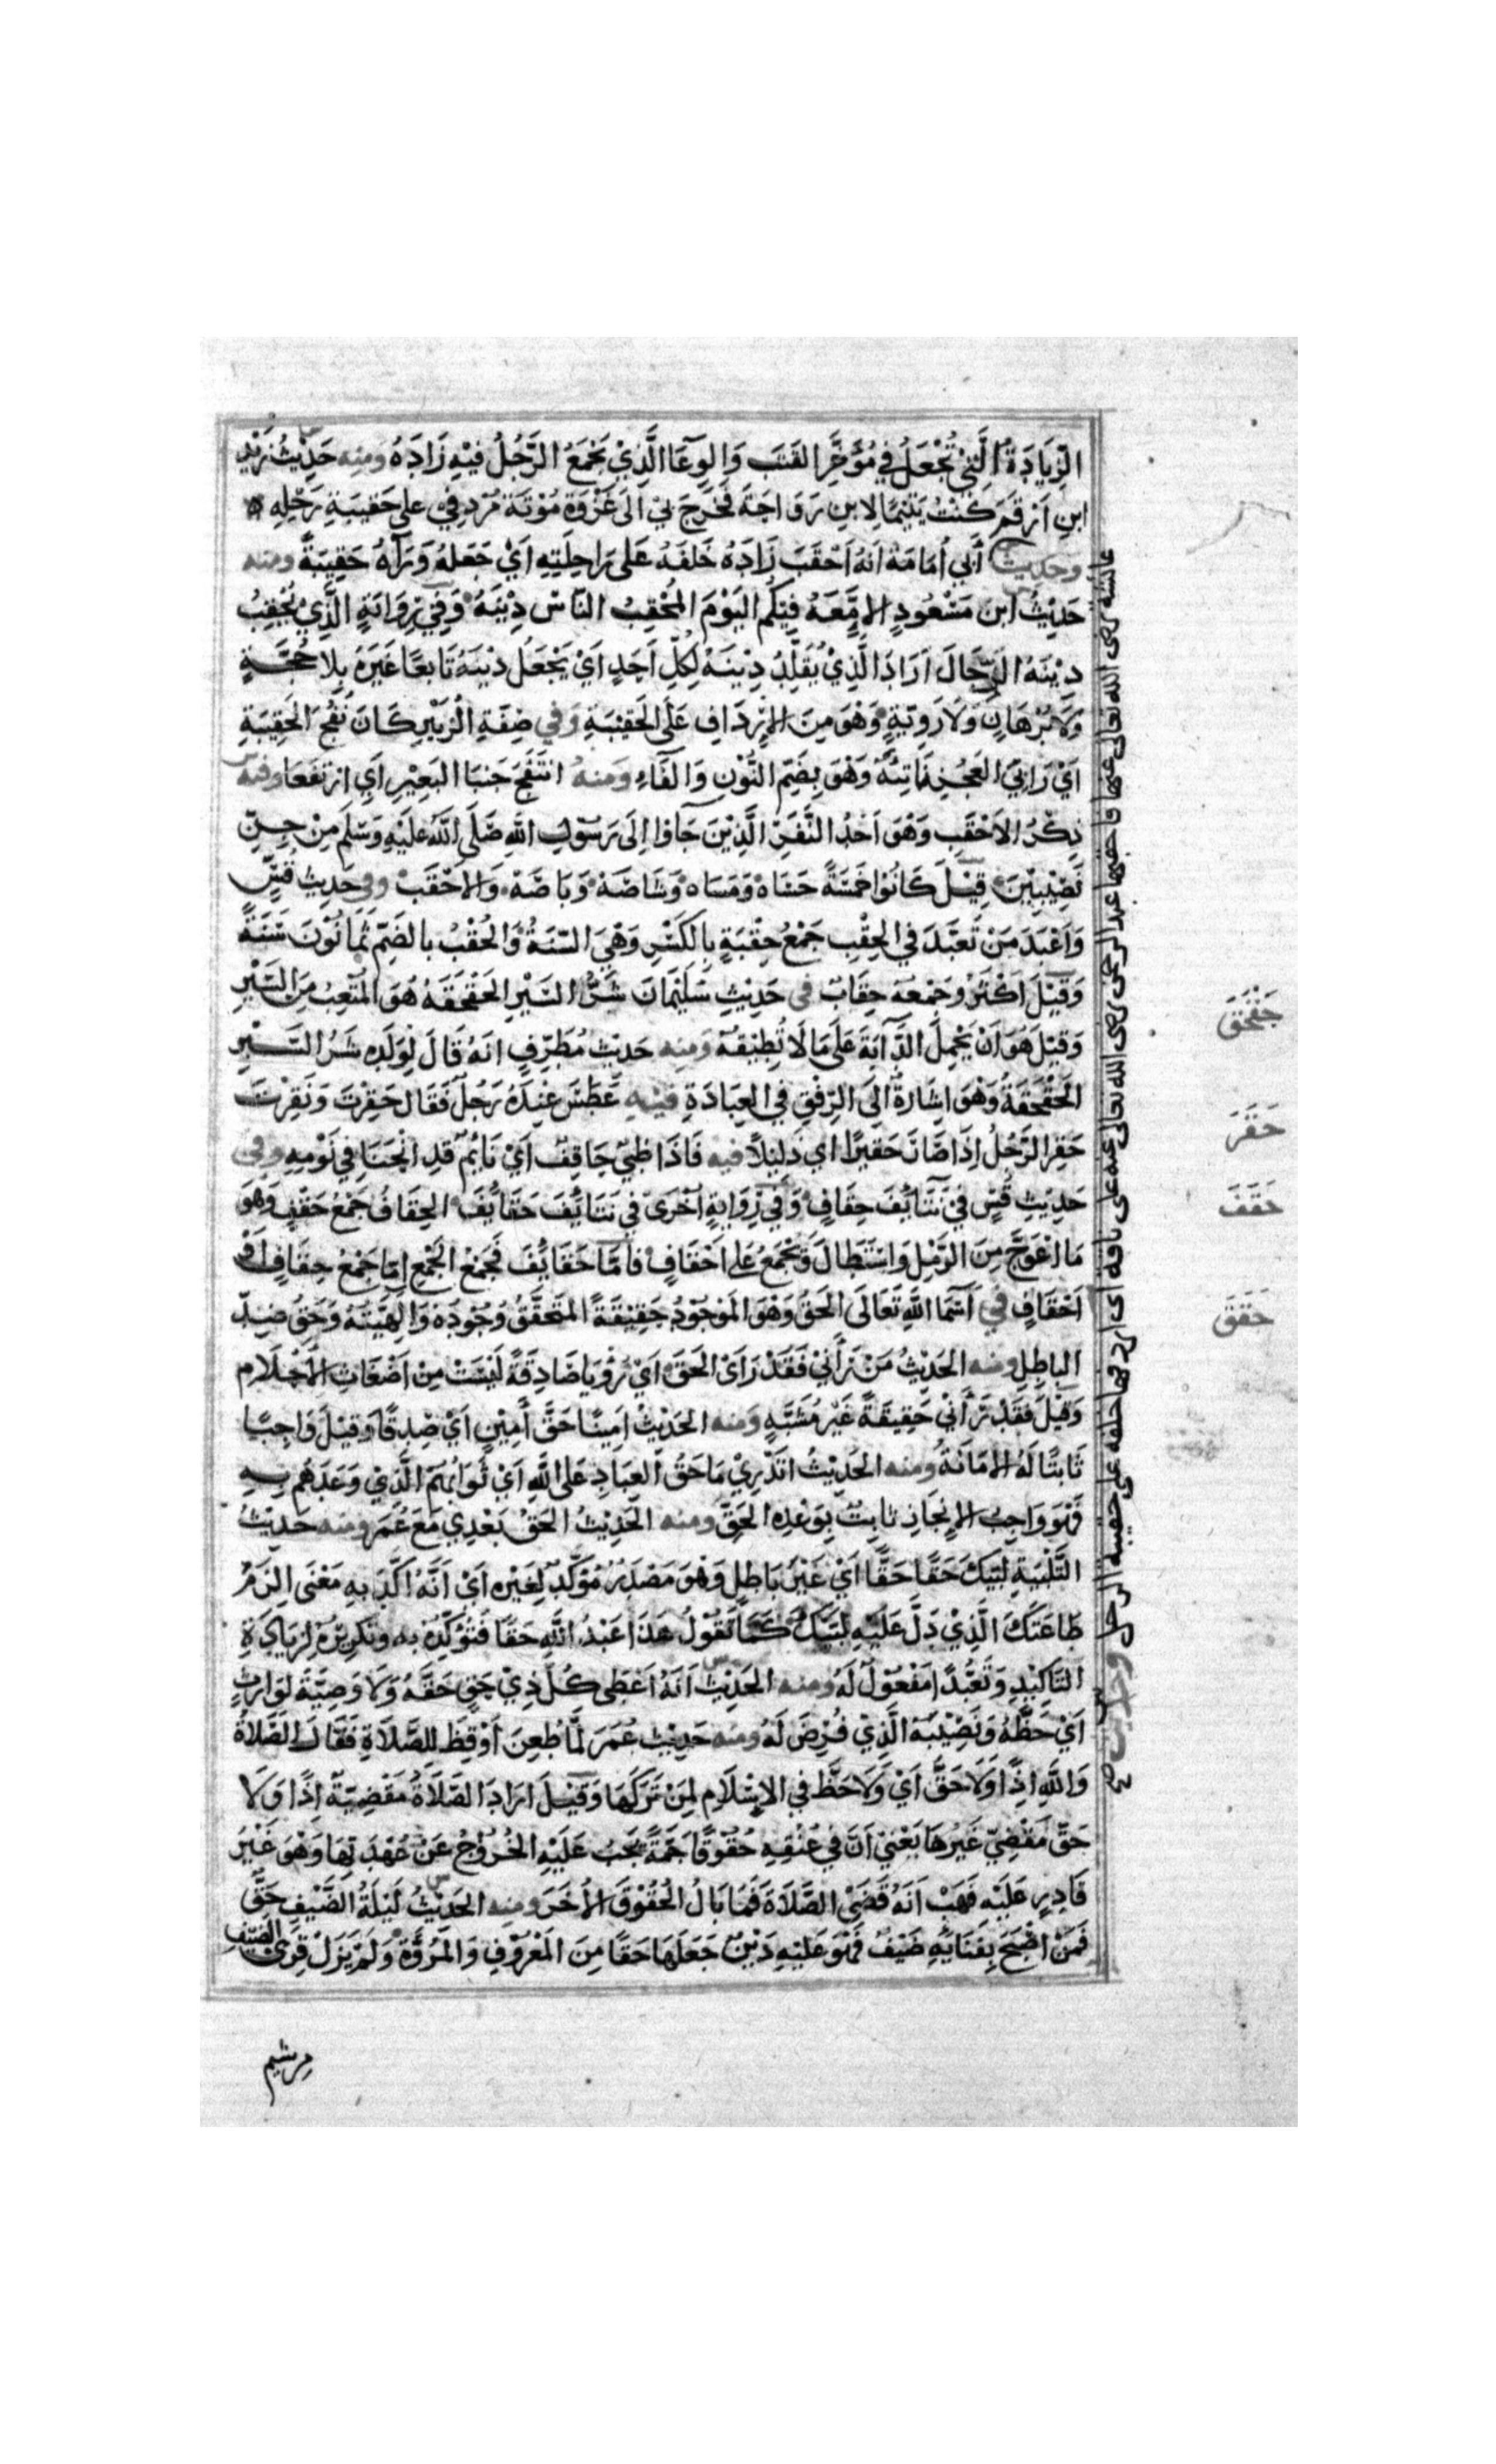 الزِّيَادَةُ الَّتِيْ تُجْعَلُ فِي مُؤَخَّرِ القَتَبِ وَالوِعَآ الَّذِيْ يَجْمَعُ الرَّجُلُ فِيْهِ زَادَهُ ومنه حَدِيْثُ زَيْدِ
ابنِ اَرْقَمَ كُنْتُ يَتِيْمًا لِابنِ رَوَاحَةَ فَخَرَجَ بِيْ اِلَى غَزْوَةِ مُوْتَةَ مُرْدِفِيْ عَلى حَقِيْبَةِ رَحْلِهِ
وحديث أَبي اُمَامَةَ اَنَهُ اَحْقَبَ زَادَهُ خَلفَهُ عَلى رَاحِلَتِهِ اَيْ جَعَلهُ وَرَآهُ حَقِيْبَةً ومنه
حَدِيْثُ ابن مَسْعُودٍ الاِمَّعَهُ فِيْكُم اليَوْمَ المُحْقِبُ النَّاسَ دِيْنَهُ وَفِيْ رِوَايَةٍ الَّذِيْ يُحْقِبُ
دِيْنَهُ الرِّجَالَ اَرَادَ الَّذِيْ يُقَلِّدُ دِيْنَهُ لِكُلِّ اَحَدٍ اَيْ يَجْعَلُ دِيْنَهُ تَابعًا غَيْرَهُ بِلا حُجَّةٍ
وَلَا بُرْهَانٍ وَلَا رَوِيَّةٍ وَهْوَ مِنَ الاِرْدَافِ عَلَى الحَقِيْبَةِ وَفي صِفَةِ الزُبَيْرِ كَانَ نُفُجَ الحَقِيْبَةِ
اَيْ رَابِيَ العَجُزِ نَاتِئَهُ وَهْوَ بِضَمّ النُّوْنِ وَالفَاءِ وَمنهُ انتَفَجَ جَنبَا البَعِيْرِ اَيِ ارتَفَعَا وفيه
ذِكْرُ الاَحْقَبِ وَهْوَ اَحَدُ النَّفَرِ الَّذِيْنَ جَاؤا اِلَى رَسُوْلِ اللهِ صَلَّى اللهُ عَلَيْهِ وَسَلَّمَ مِنْ جِنِّ
نَصِيْبِيْنَ قِيْلَ كَانُوْا خَمْسَةً حَسَاه وَمَسَاه وَشَاصَهْ وَبَاصَهْ وَالاَحْقَبْ وفي حَدِيث قُسٍّ
وَاَعْبَدَ مَنْ تَعَبَّدَ في الحِقْبِ جَمْعُ حِقْبَةٍ بِالكَسْرِ وَهْيَ السَّنَةُ وَالحُقْبُ بالضَمّ ثَمَانُوْنَ سَنَةً
وَقِيْلَ اَكْثَرُ وَجَمْعُهُ حِقَابٌ في حَدِيْثِ سَلْمَانَ شَرُّ السَّيْرِ الحَقْحَقَةُ هُوَ المُتعِبُ مِنَ السَّيْرِ
وَقِيْلَ هُوَ اَنْ يَحْمِلَ الدَّآبَةَ عَلَى مَا لَا تُطِيْقُهُ ومنه حَدِيْثُ مُطَرِّفٍ انَهُ قَالَ لِوَلَدِهِ شَرُ السَّيْرِ
الحَقْحَقَةُ وَهْوَ اِشَارةٌ اِلَى الرِّفْقِ في العِبَادَةِ فيه عَطَسَ عِنْدَهُ رَجُلٌ فَقَالَ حَقِرْتَ وَنَقِرْتَ
حَقِرَ الرَّجُلُ اِذَا صَارَ حَقِيرًا اي ذَلِيْلًا فيه فَاذَا ظَبيٌ حَاقِفٌ اَيْ نَائِمٌ قَدِ انْحَنَا فِي نَوْمِهِ وفي
حَدِيْثِ قُسٍّ فِيْ تَنَائِفَ حِقَافٍ وَفِيْ رِوَايةٍ اُخْرَى في تَنَائِفَ حَقَائِفَ الحِقَافُ جَمْعُ حِقْفٍ وَهْوَ
مَا اعْوَجَّ مِنَ الرَّمْلِ وَاسْتَطَالَ وَيُجْمَعُ عَلى اَحْقَافٍ فامَّا حَقَائِفَ فَجَمْعُ الجَمْعِ اِمَا جَمْعُ حِقَافٍ اَوْ
اَحْقَافٍ في اَسْمَا اللهِ تَعَالَى الحَقُ وَهْوَ المَوْجُوْدُ حَقِيْقَةً المتَحَقَّقُ وُجُوْدُه وَاِلهِيَّتُهُ وَحَقُ ضِدّ
الباطِلِ ومنه الحَدِيْثُ مَنْ رَأنِيْ فَقَدْ رَأىَ الحَقَ اَيْ رُؤْيَا صَادِقَةً لَيْسَتْ مِنْ اَضْغَاثِ الاَحْلَامِ
وَقِيْلَ فَقَدْ رَأنِي حَقِيقَةً غَيْرَ مُشَبَّهٍ وَمنه الحَدِيْثُ اَمِينًا حَقَّ اَمِيْنٍ اَيْ صِدقًا وَقِيْلَ وَاجِبًا
ثَابتًا لَهُ الاَمَانَةُ ومنه الحَدِيْثُ اتَدْرِيْ مَا حَقُ العِبَادِ عَلَى اللهِ اَيْ ثَوَابُهُمُ الَّذِي وَعَدَهُم بِهِ
فَهْوَ وَاجِبُ الاِنجَازِ ثابِتٌ بِوَعْدِهِ الحَقّ ومنه الحَدِيْثُ الحَقُ بَعْدِي مَعَ عُمَرَ ومنه حَدِيْثُ
التَّلْبِيَةِ لبَّيْكَ حَقًا حَقًّا اَيْ غَيْرَ بَاطِلٍ وَهْوَ مَصْدَرٌ مُؤكِّدٌ لِغَيْرِهِ اَيْ اَنَّهُ اَكَّدَ بِهِ مَعْنَى الزَمُ
طَاعَتَكَ الَّذِيْ دَلَّ عَلَيْهِ لبَّيْكَ كَمَا تَقُوْلُ هَذَا عَبْدُ اللهِ حَقًا فَتُؤَكِّدُ بِهِ وَتكرِيْرُهُ لِزِيَادَةِ
التَاكِيْدِ وَتَعَبُّدًا مَفْعُوْلٌ لَهُ ومنه الحَدِيْث اَنَهُ اَعْطَى كُلَّ ذِيْ حَقٍ حَقَّهُ وَلَا وَصِيَّةَ لِوَارِثٍ
اَيْ حَظَّهُ وَنَصِيْبَهُ الَّذِيْ فُرِضَ لَهُ ومنه حَدِيْث عُمَرَ لمَّا طُعِنَ اُوْقِظَ لِلصَّلَاةِ فَقَالَ الصَّلاةُ
وَاللهِ اِذًا وَلَا حَقَّ اَيْ وَلَا حَظَّ في الاِسْلَامِ لِمَنْ تَرَكَهَا وَقِيْلَ اَرَادَ الصَّلَاةُ مَقْضِيّةٌ اِذًا وَلَا
حَقَّ مَقْضِيّ غَيْرُهَا يَعْنِي اَنَّ في عُنُقِهِ حُقُوْقًا جَمَّةً يَجبُ عَلَيْهِ الخُرُوْجُ عَنْ عُهْدَتِهَا وَهْوَ غَيْرُ
قَادِرٍ عَلَيْهِ فَهَبْ اَنَهُ قَضَىْ الصَّلَاةَ فَمَا بَالُ الحُقُوْقِ الاُخَرَ ومنه الحَدِيْثُ لَيْلَةُ الضَّيْفِ حَقٌّ
فَمَنْ اَصْبَحَ بِفِنَائِهِ ضَيْفٌ فَهْوَ عَليْهِ دَيْنٌ جَعَلَهَا حَقًا مِنَ المَعْرُوْفِ وَالمُرُؤَّةِ وَلَمْ يَزَلْ قِرَى الضَيْفِ
عائشة رضى الله تعالى عنها فاحقبها عبد الرحمن رضى الله تعالى عنه على ناقة اى اردفها خلفه على حقيبة الرحل وحديث
حَقْحَقَ
حَقَرَ
حَقَفَ
حَقَقَ